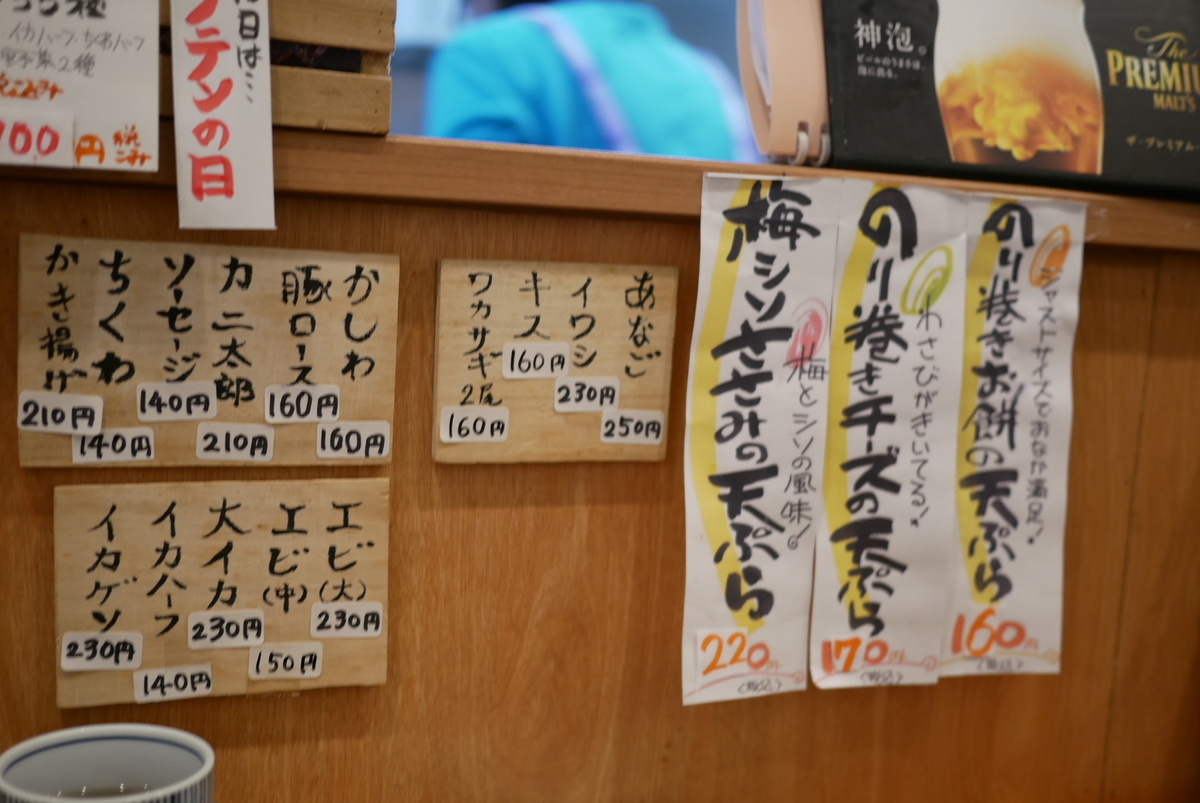 イカハーフ・ちくわハーフ
野菜2種
100円 税こみ
日は…
テンの日
神泡。
The
PREMIU
MALT'S
ザ・プレミアム・
かしわ
160円
豚ロース
160円
カニ太郎
210円
ソーセージ
140円
ちくわ
140円
かき揚げ
210円
あなご
250円
イワシ
230円
キス
160円
ワカサギ
2尾
160円
エビ(大)
230円
エビ(中)
150円
大イカ
230円
イカハーフ
140円
イカゲソ
230円
ジャストサイズでおなか満足!
のり巻きお餅の天ぷら
160円
(税込)
わさびがきいてる!
のり巻きチーズの天ぷら
170円
(税込)
梅とシソの風味!
梅シソささみの天ぷら
220円
(税込)